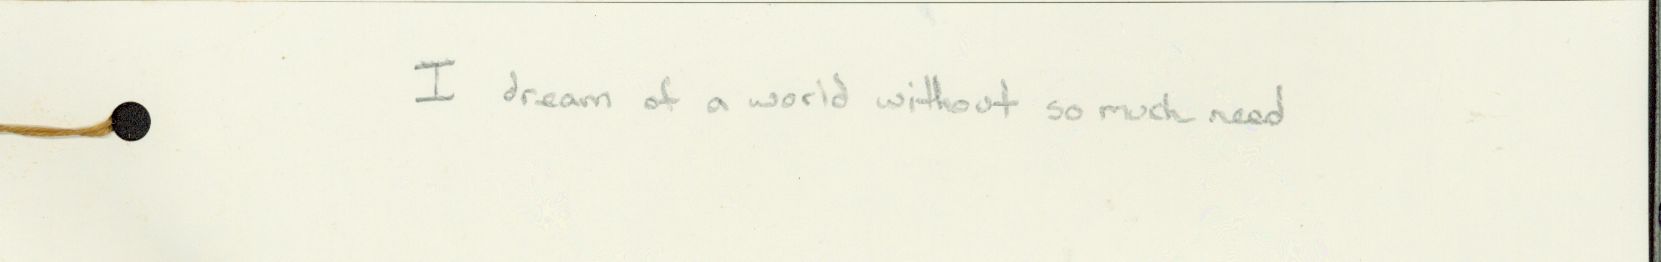 I dream of a world without so much need